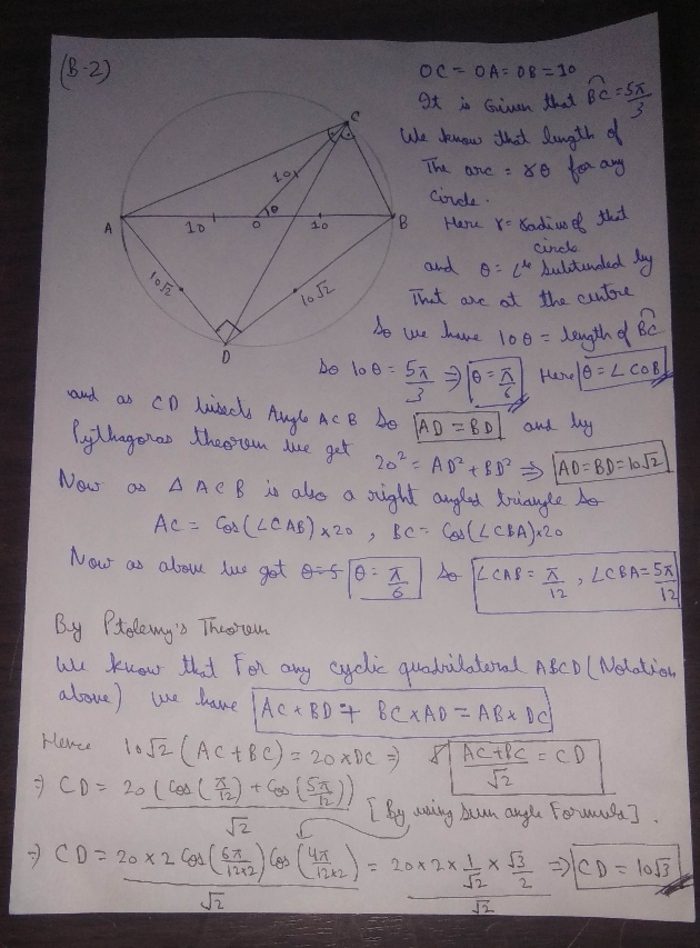 (B-2)
OC = OA = OB = 10
It is Given that B͡C = 5π/3
We know that length of
The arc = rθ for any
Circle.
Here r = radius of that
circle
and θ = ∠le Subtended by
That arc at the centre
So we have 10θ = length of B͡C
So 10θ = 5π/3 ⇒ θ = π/6 Here θ = ∠COB
C
10
θ
A 10 O 10 B
10√2 10√2
D
and as CD bisects Angle ACB So AD = BD and by
Pythagoras theorem we get 20² = AD² + BD² ⇒ AD = BD = 10√2
Now as △ ACB is also a right angled triangle So
AC = Cos(∠CAB) × 20 , BC = Cos(∠CBA) × 20
Now as above we got θ = 5 θ = π/6 So ∠CAB = π/12 , ∠CBA = 5π/12
By Ptolemy's Theorem
We know that For any cyclic quadrilateral ABCD (Notation
above) we have AC × BD + BC × AD = AB × DC
Hence 10√2 (AC + BC) = 20 × DC ⇒ (AC + BC)/√2 = CD
⇒ CD = 20 (Cos(π/12) + Cos(5π/12))/√2 [By using Sum angle Formula].
⇒ CD = 20 × 2 Cos(6π/12×2) Cos(4π/12×2)/√2 = 20 × 2 × 1/√2 × √3/2/√2 ⇒ CD = 10√3